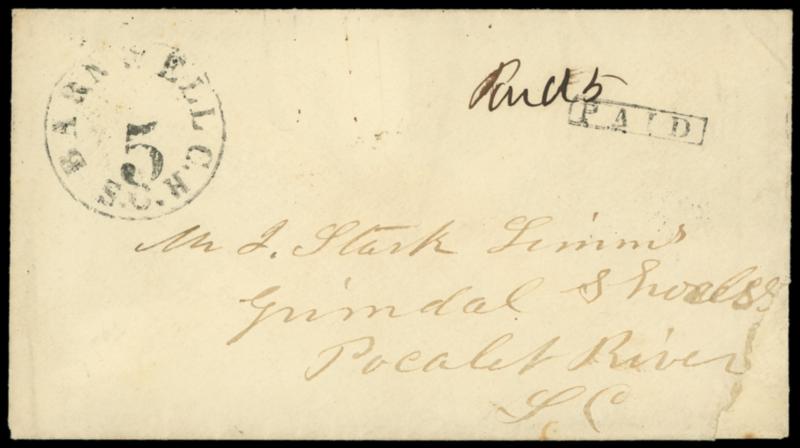 BARNWELL C.H. S.C.
5
Paid 5
PAID
Mr J. Stark Simms
Grindal Shoals
Pacolet River
S C